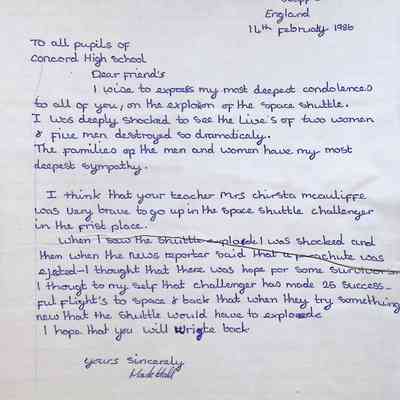 England
14th February 1986
To all pupils of
Concord High school
Dear friend's
I wise to express my most deepest condolences
to all of you, on the explosion of the space shuttle.
I was deeply shocked to see the Live's of two women
& five men destroyed so dramaticaly.
The families of the men and women have my most
deepest sympathy.
I think that your teacher Mrs chirsta mcauliffe
was very brave to go up in the space shuttle challenger
in the frist place.
When I saw the shuttle explode I was shocked and
then when the news reporter said that a parachute was
ejected I thought that there was hope for some survivors
I thougt to my self that challenger has made 25 success-
ful flight's to space & back that when they try something
new that the shuttle would have to explode
I hope that you will wright back
yours sincerely
Mark Hall